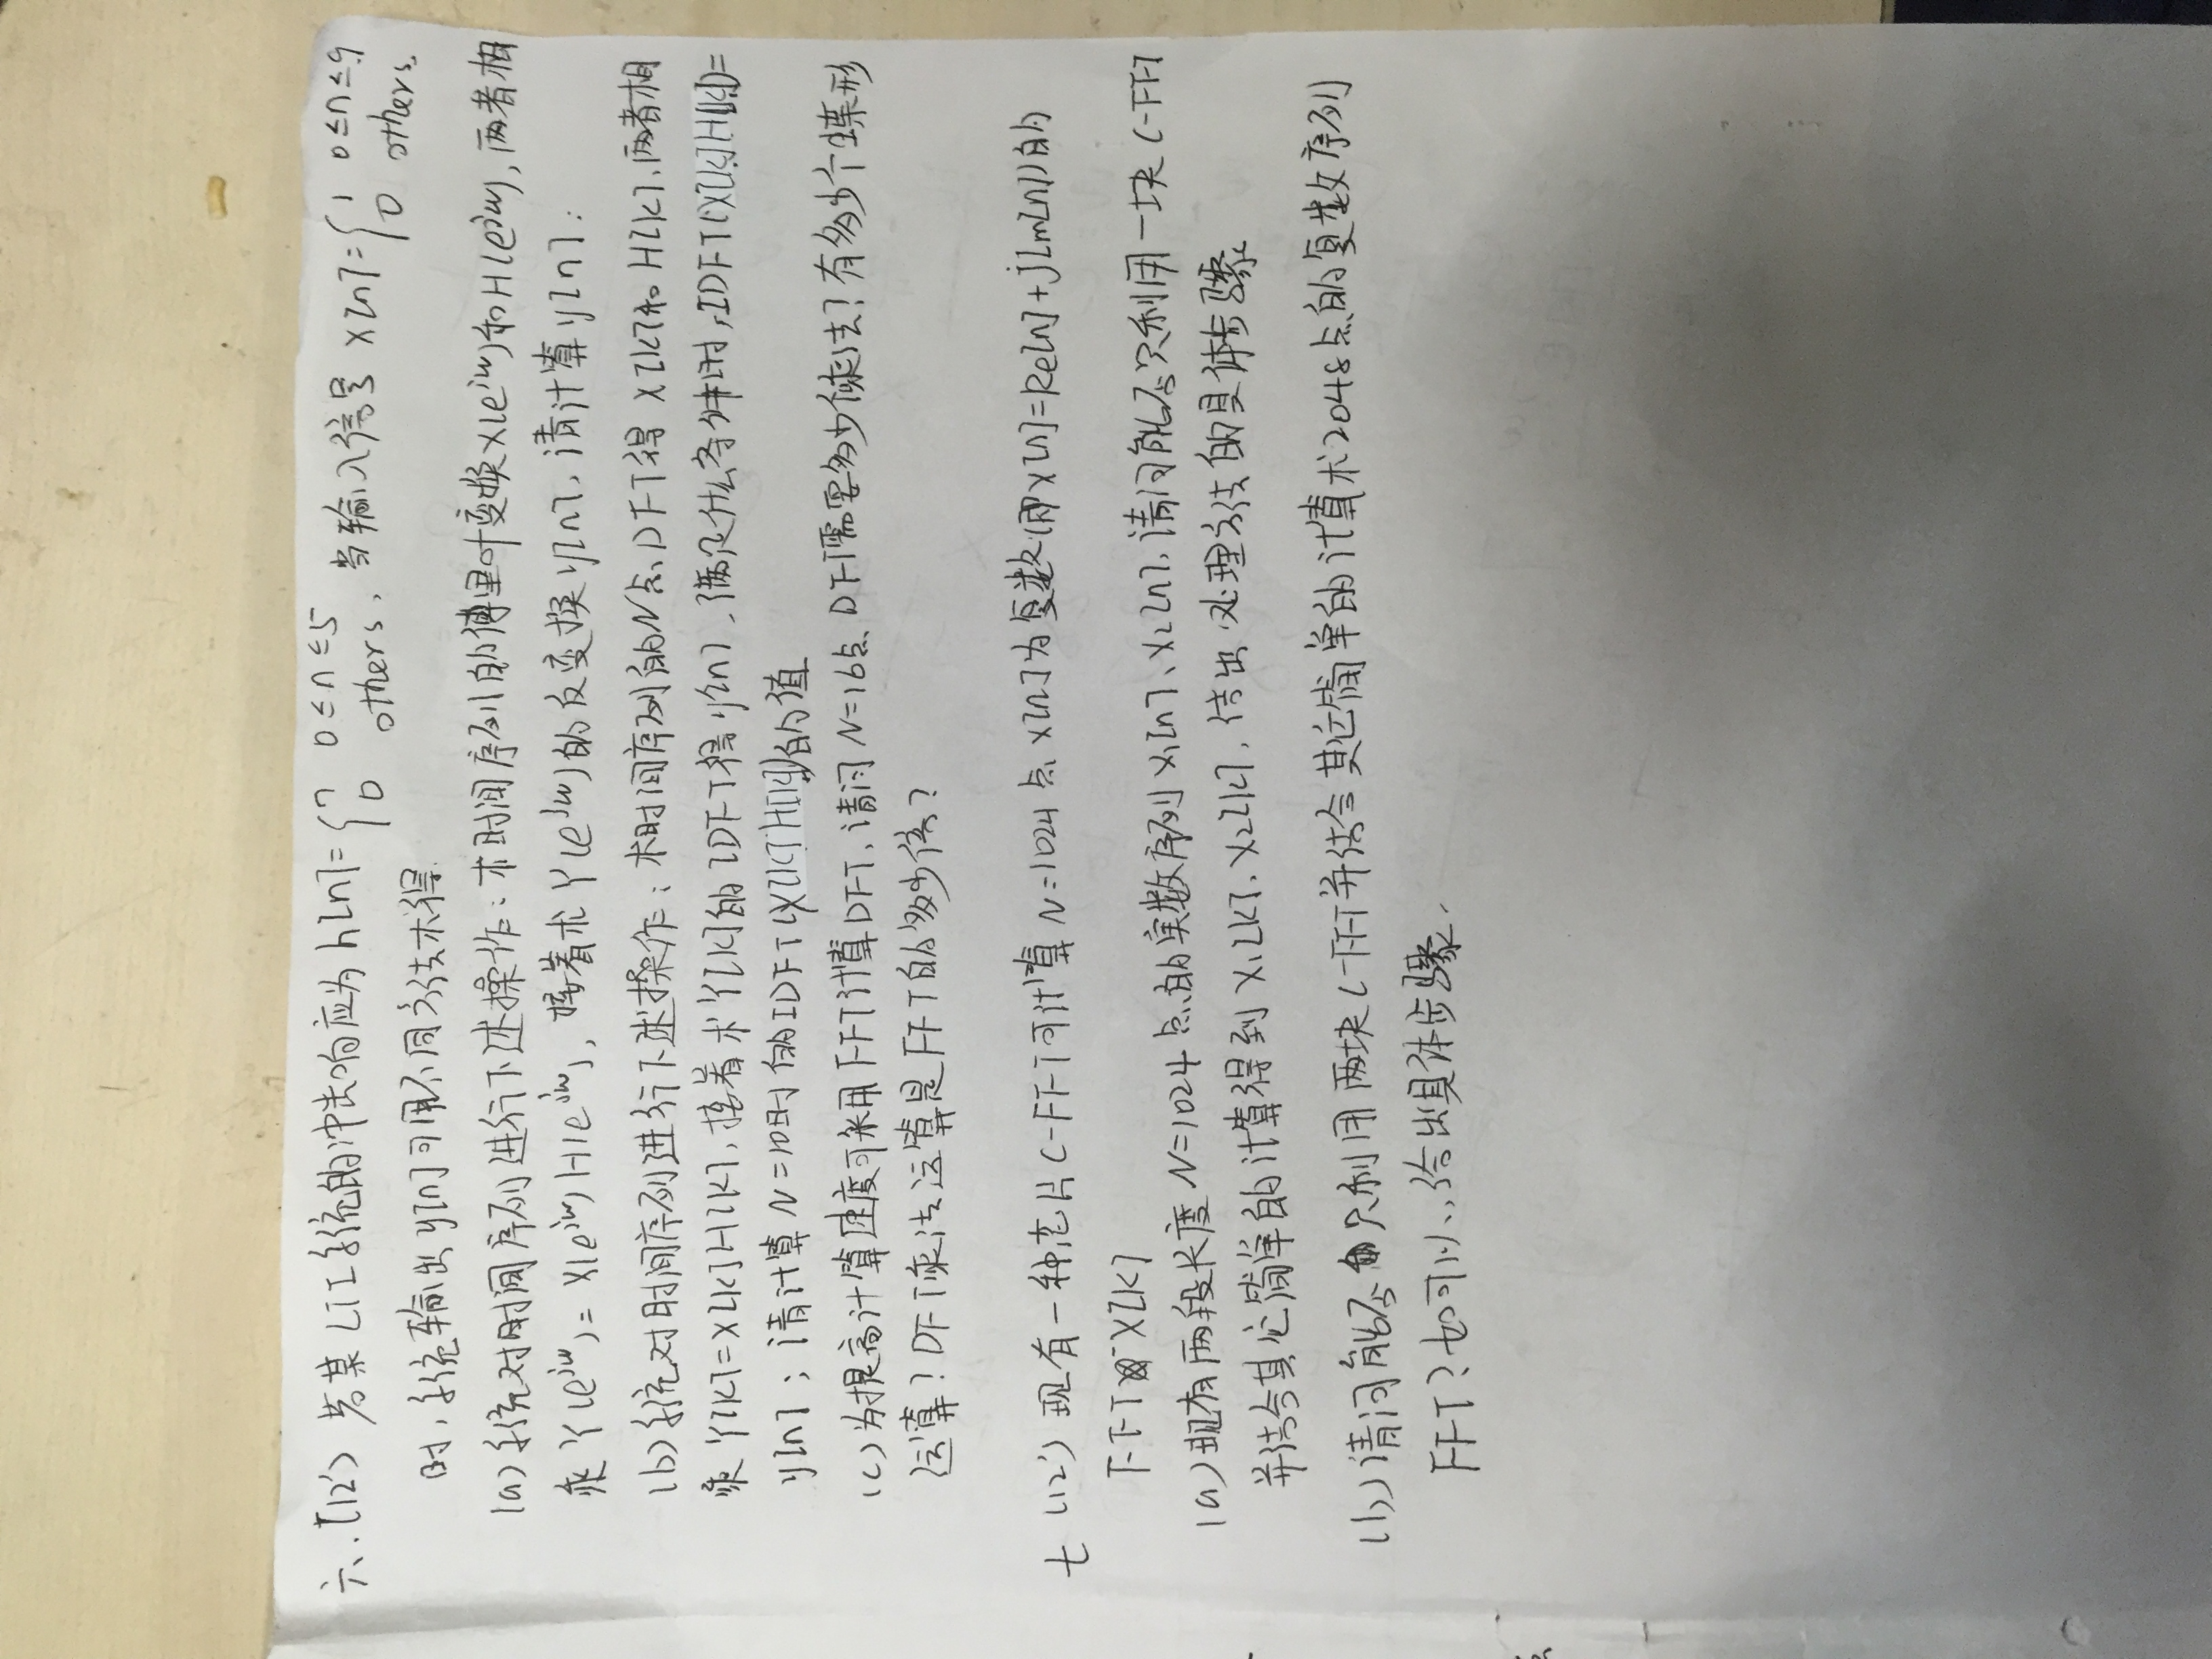 六.(12') 若某LTI系统的冲击响应为h[n]={n 0≤n≤5 0 others, 当输入信号 x[n]={1 0≤n≤9 0 others.
时,系统输出y[n]可用不同方法求得.
(a)系统对时间序列进行下述操作:求时间序列的傅里叶变换X(e^{jw})和H(e^{jw}),两者相
乘Y(e^{jw})=X(e^{jw})H(e^{jw}),接着求Y(e^{jw})的反变换y[n],请计算y[n];
(b)系统对时间序列进行下述操作:求时间序列的N点DFT得X[k]和H[k],两者相
乘Y[k]=X[k]H[k],接着求Y[k]的IDFT得y[n],满足什么条件时,IDFT(X[k]H[k])=
y[n];请计算N=10时的IDFT(X[k]H[k])的值
(c)为提高计算速度可采用FFT计算DFT,请问N=16点DFT需要多少乘法?有多少个蝶形
运算?DFT乘法运算是FFT的多少倍?
七(12')现有一种芯片C-FFT可计算N=1024点x[n]为复数(即x[n]=Re[n]+jIm[n])的
FFT X[k]
(a)现有两段长度N=1024点的实数序列x₁[n]、x₂[n],请问能否只利用一块C-FFT
并结合其它简单的计算得到X₁[k]、X₂[k],给出处理方法的具体步骤
(b)请问能否只利用两块C-FFT并结合其它简单的计算求2048点的复数序列
FFT?如可以,给出具体步骤.